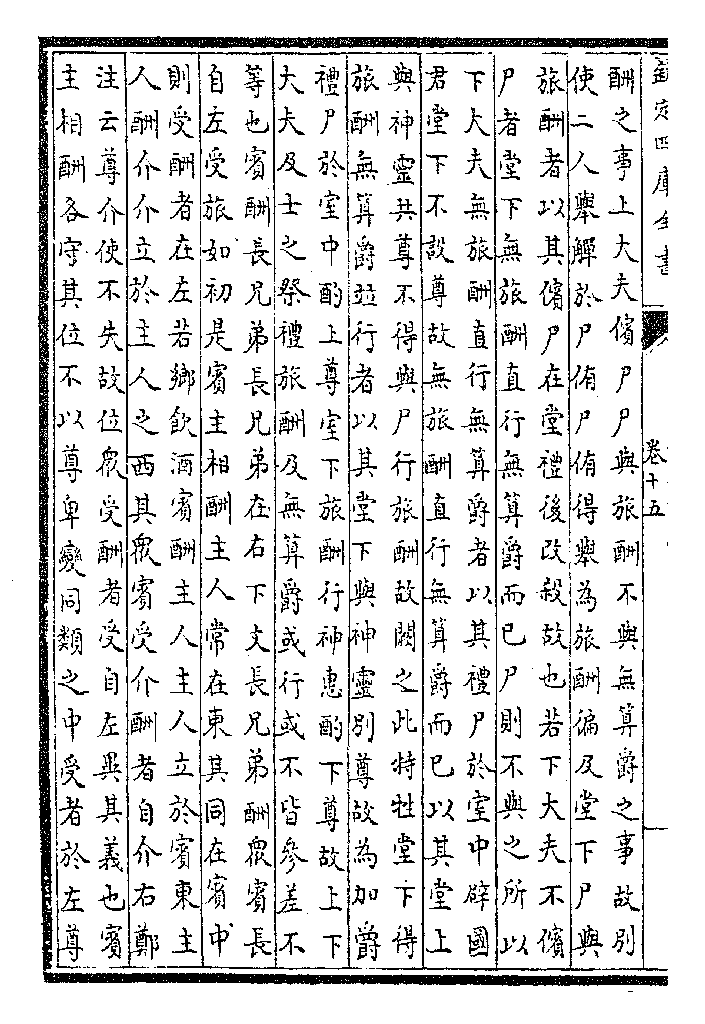 欽定四庫全書
卷十五
酬之事上大夫儐尸尸與旅酬不與無算爵之事故别
使二人舉觶於尸侑尸侑得舉為旅酬徧及堂下尸與
旅酬者以其儐尸在堂禮後改殺故也若下大夫不儐
尸者堂下無旅酬直行無算爵而已尸則不與之所以
下大夫無旅酬直行無算爵者以其禮尸於室中辟國
君堂下不設尊故無旅酬直行無算爵而已以其堂上
與神靈共尊不得與尸行旅酬故闕之此特牲堂下得
旅酬無算爵並行者以其堂下與神靈别尊故為加爵
禮尸於室中酌上尊室下旅酬行神惠酌下尊故上下
大夫及士之祭禮旅酬及無算爵或行或不皆參差不
等也賓酬長兄弟長兄弟在右下文長兄弟酬衆賓長
自左受旅如初是賓主相酬主人常在東其同在賓中
則受酬者在左若鄉飲酒賓酬主人主人立於賓東主
人酬介介立於主人之西其衆賓受介酬者自介右鄭
注云尊介使不失故位衆受酬者受自左異其義也賓
主相酬各守其位不以尊卑變同類之中受者於左尊